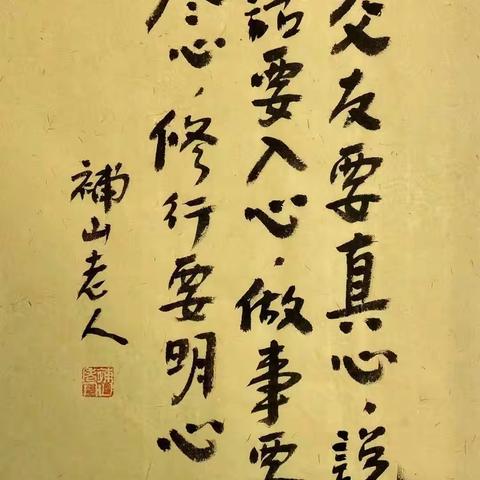 交友要真心，說
話要入心，做事要
尽心，修行要明心
補山老人